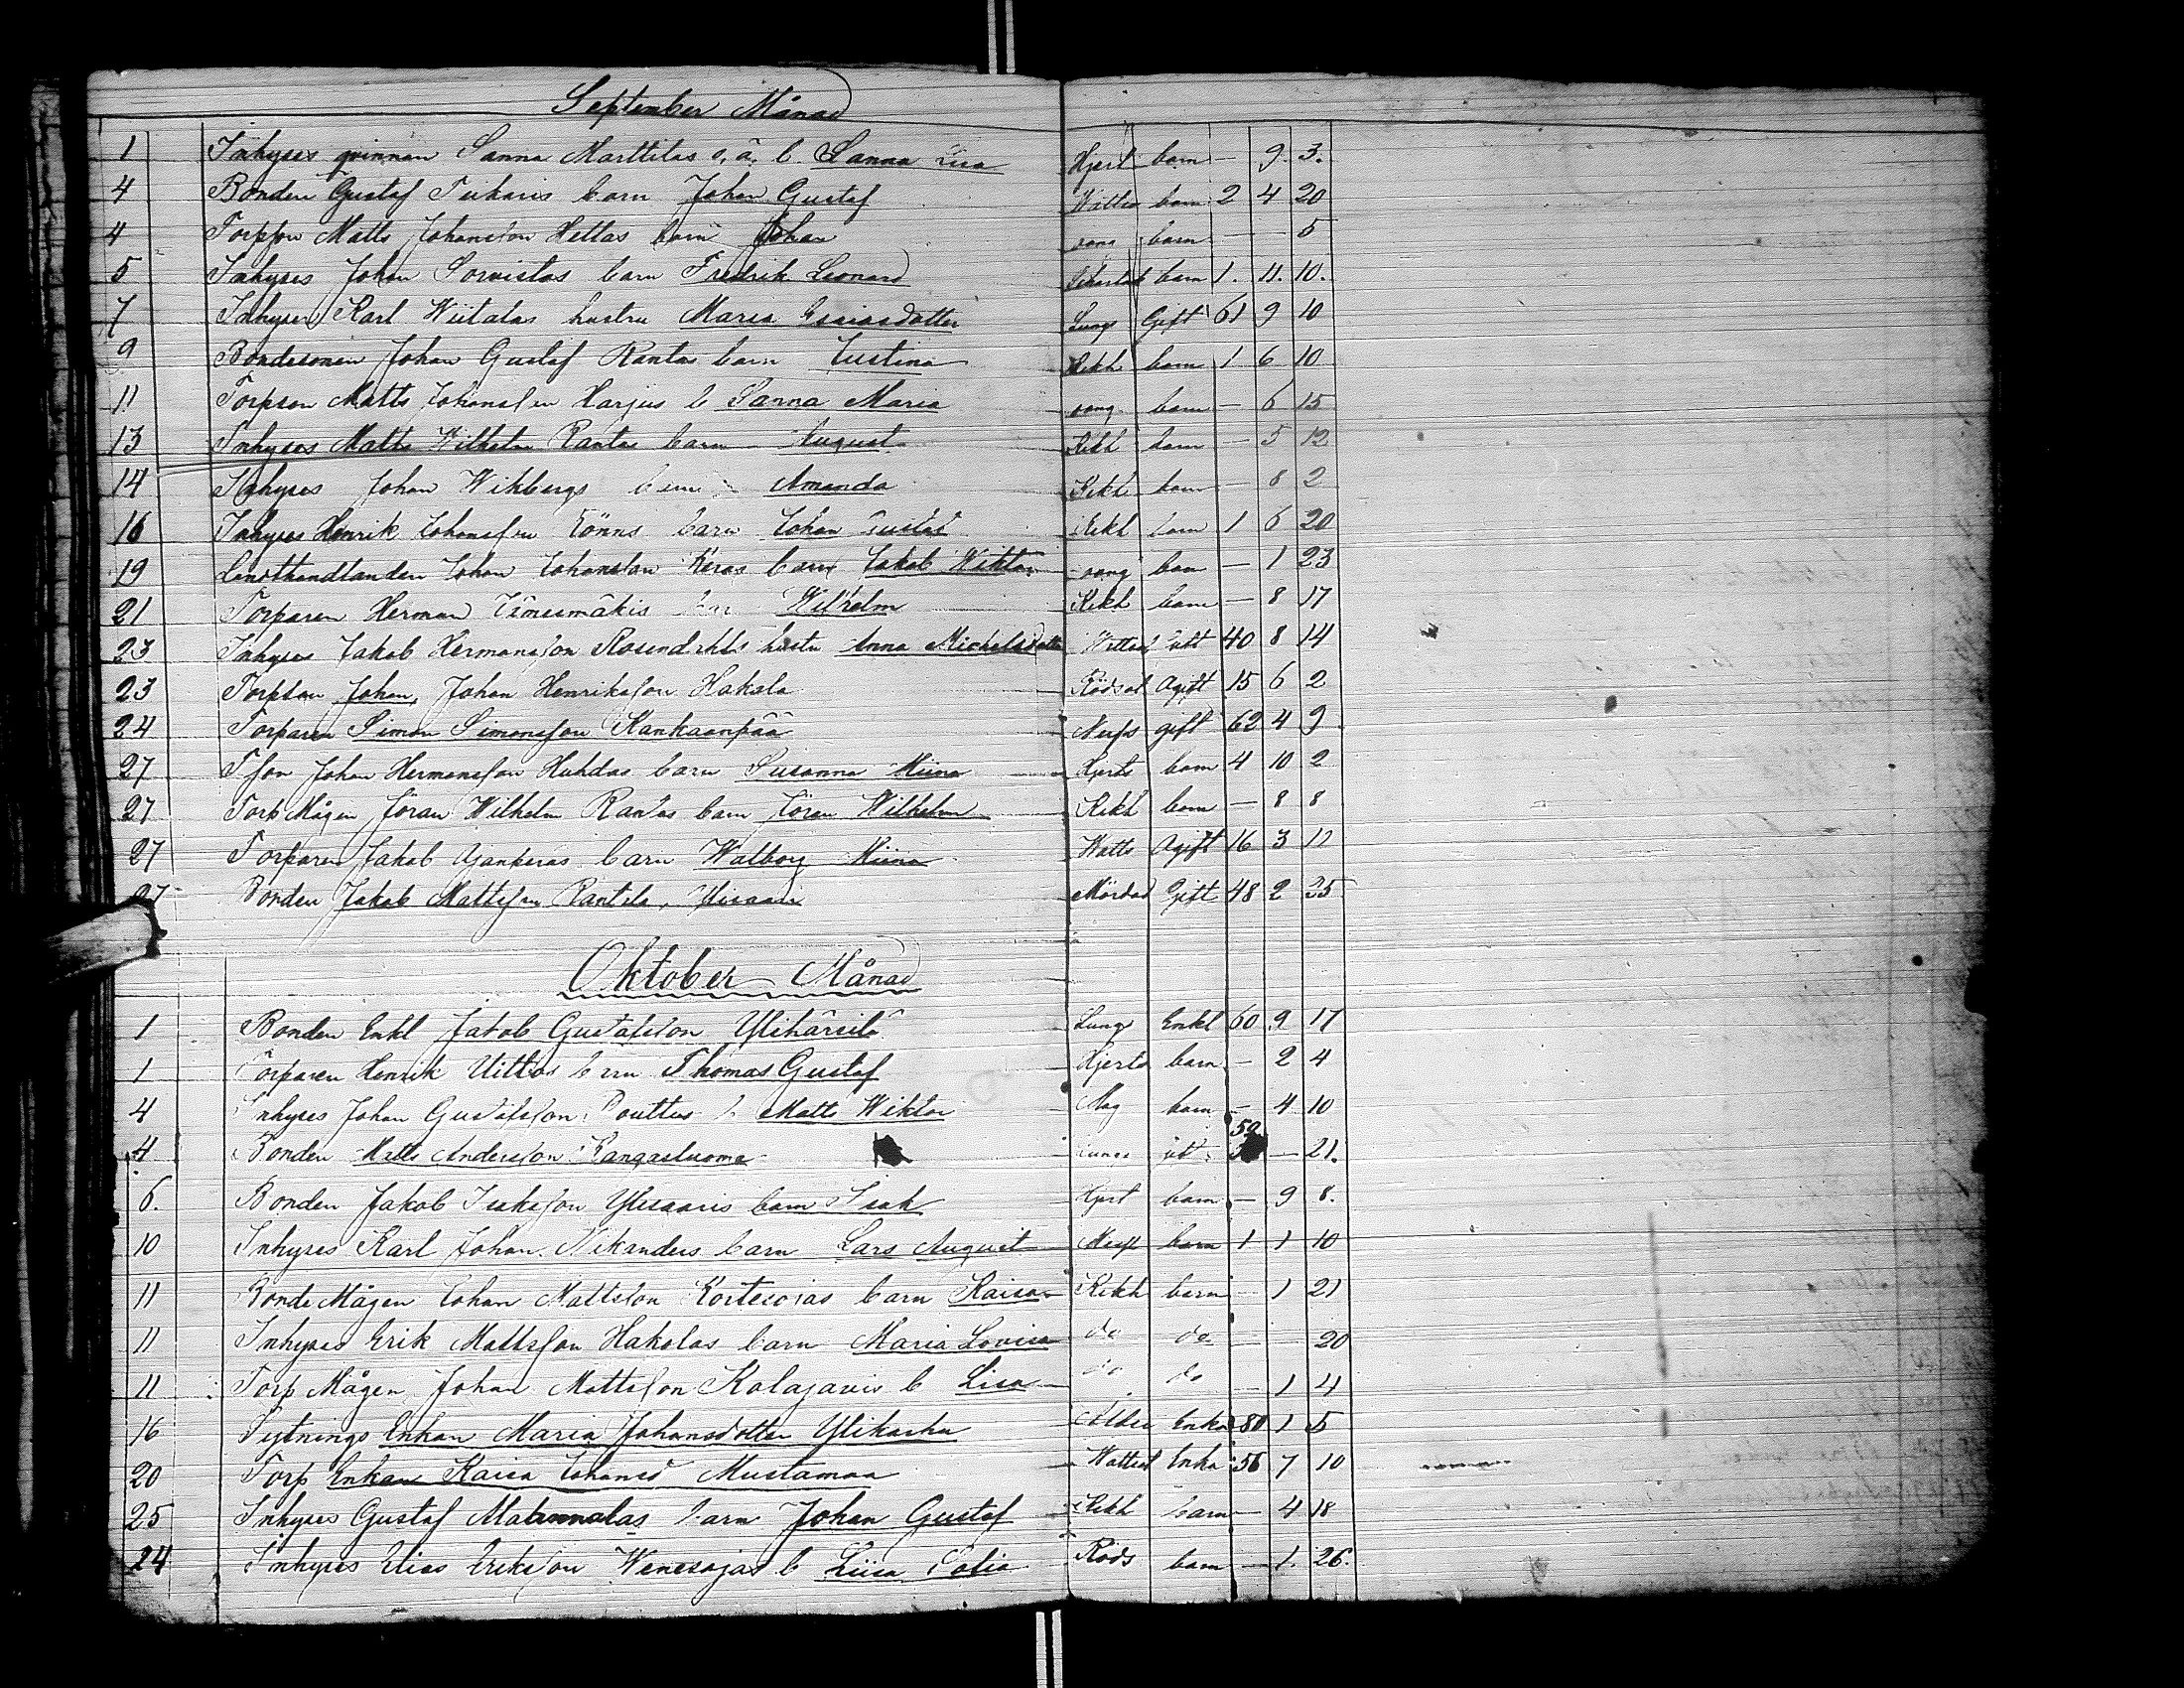 September Månad
1 Inhyses qvinnan Sanna Marttilas o. ä. b. Sanna Lisa Hjert barn — 9. 3.
4 Bonden Gustaf barn Johan Gustaf barn 2 4 20
4 Torpson Matts Johansson Hettas barn Johan barn — — 5
5 Inhyses Johan Sorvistos barn Fredrik Leonard barn 1. 11. 10.
7 Inhyses Karl Wiitalas hustru Maria Esaiasdotter Lungs Gift 61 9 10
9 Bondesonen Johan Gustaf Rantas barn Justina Kikh barn 1 6 10
11 Torpson Matts Johansson Harjus b Sanna Maria barn — 6 15
13 Inhyses Matts Wilhelm Rantas barn August Kikh barn — 5 12
14 Inhyses Johan Wikbergs barn Amanda Kikh barn — 8 2
16 Inhyses Henrik Johansson Rönns barn Johan Gustaf Kikh barn 1 6 20
19 Landthandlanden Johan Johansson Keros barn Jakob Wiktor barn — 1 23
21 Torparen Herman barn Wilhelm Kikh barn — 8 17
23 Inhyses Jakob Hermansson Rosendahls hustru Anna Michelsdotter 40 8 14
23 Torpson Johan, Johan Henriksson Hakala Rödsot Ogift 15 6 2
24 Torparen Simon Simonsson Kankaanpää gift 62 4 9
27 Tson Johan Hermansson Huhdas barn Susanna Miina Hjerts barn 4 10 2
27 Torp Mågen Jöran Wilhelm Rantas barn Jöran Wilhelm Kikh barn — 8 8
27 Torparen Jakob Ojankeras barn Walborg Miina Watts Ogift 16 3 11
27 Bonden Jakob Mattsson Rantila, Ylisaari Mördad Gift 48 2 25
Oktober Månad
1 Bonden Enkl Jakob Gustafsson Ylihärsilä Lungs Enkl 60 9 17
1 Torparen Henrik Uittos barn Thomas Gustaf Hjerts barn — 2 4
4 Inhyses Johan Gustafsson Pouttus b Matts Wiktor Mag barn — 4 10
4 Bonden Matts Andersson Kangasluoma Lungs 59 — 21.
6. Bonden Jakob Isaksson Ylisaaris barn Isak Hjert barn — 9 8.
10 Inhyses Karl Johan Nikanders barn Lars August barn 1 1 10
11 Bonde Mågen Johan Mattsson Kortesojas barn Kaisa Kikh barn — 1 21
11 Inhyses Erik Mattsson Hakolas barn Maria Lovisa do do — 20
11 Torp Mågen Johan Mattsson Kolajarvis b Lisa do do — 1 4
16 Sytnings Enkan Maria Johansdotter Ylikarhu Enka 80 1 5
20 Torp Enkan Kaisa Johansd Mustamaa Wattsot Enka 56 7 10
25 Inhyses Gustaf barn Johan Gustaf Kikh barn — 4 18
24 Inhyses Elias Eriksson Wenesojas b Liisa Sofia Röds barn — 1. 26.